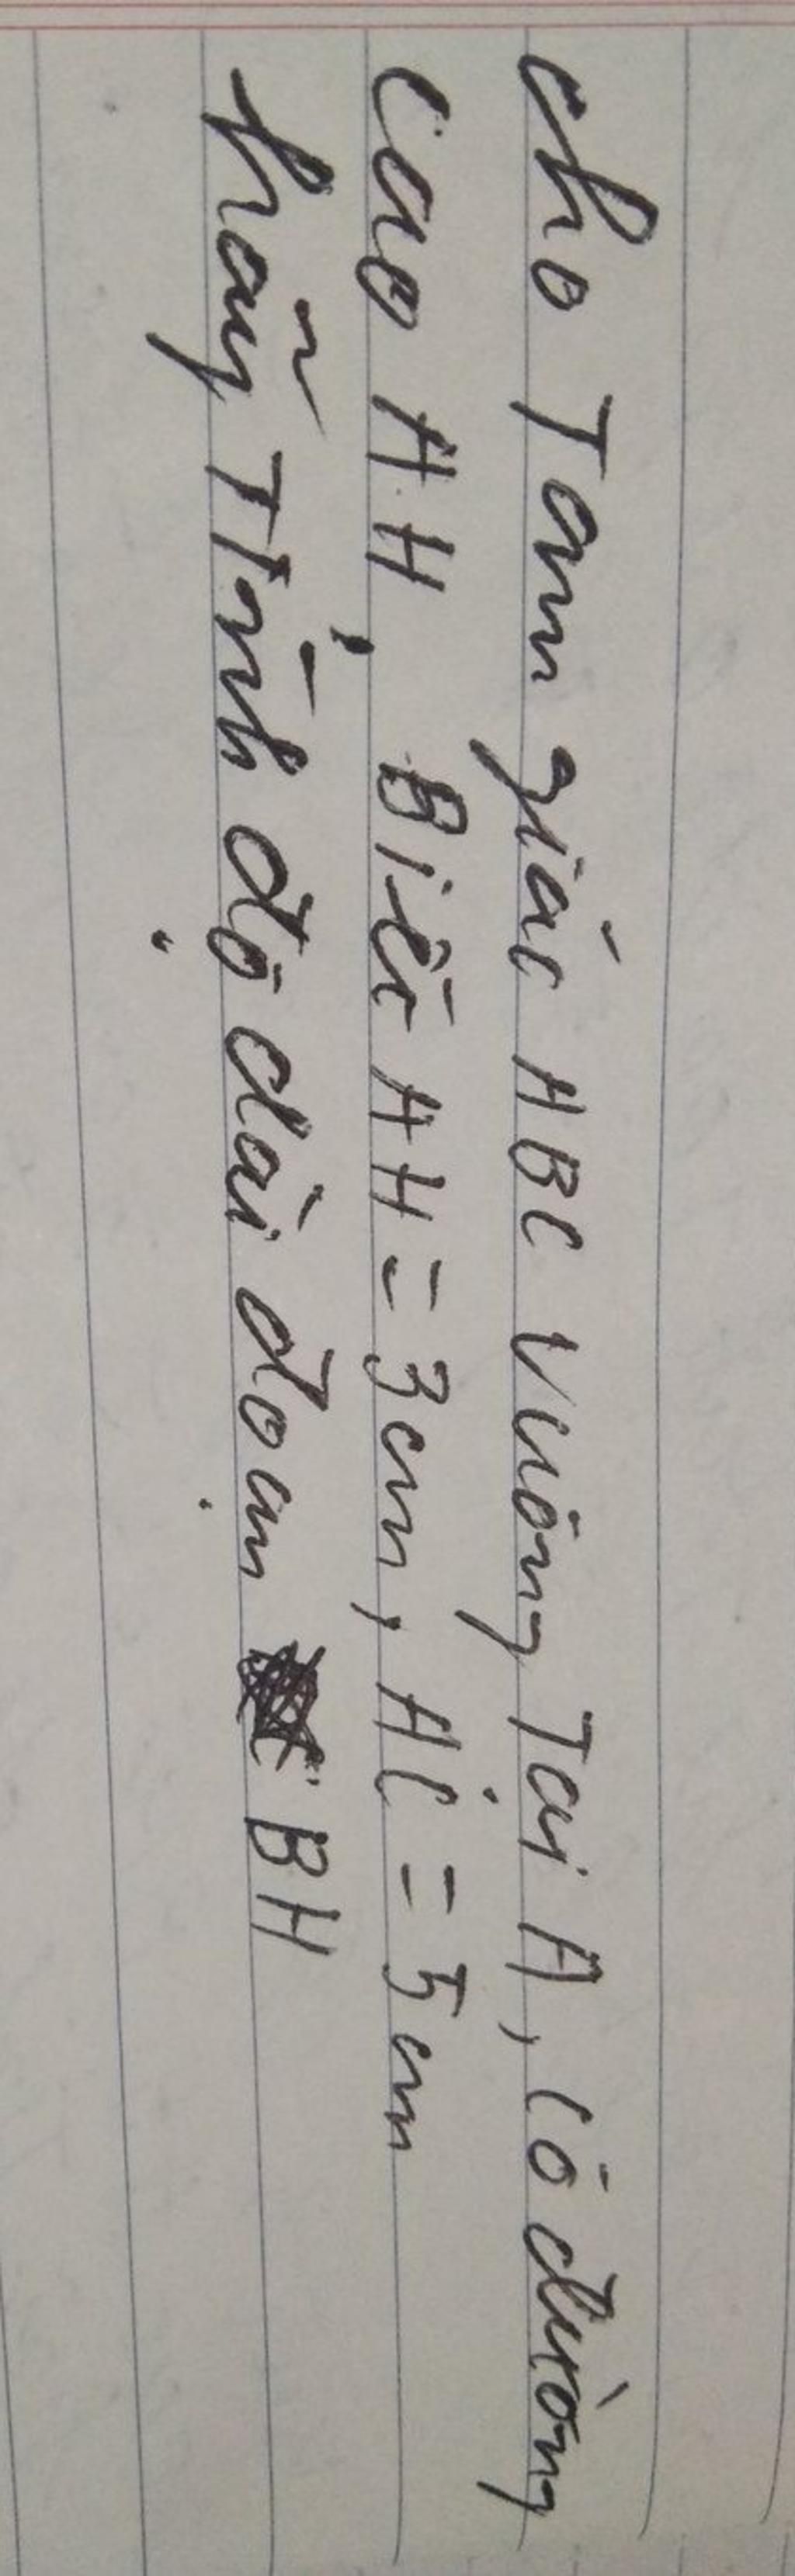 cho Tam giác ABC vuông Tại A, có đường
cao AH, Biết AH = 3cm, AC = 5cm
hãy Tính độ dài đoạn BH